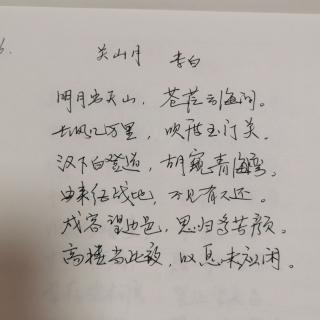 6.
关山月 李白
明月出天山，苍茫云海间。
长风几万里，吹度玉门关。
汉下白登道，胡窥青海湾。
由来征战地，不见有人还。
戍客望边邑，思归多苦颜。
高楼当此夜，叹息未应闲。